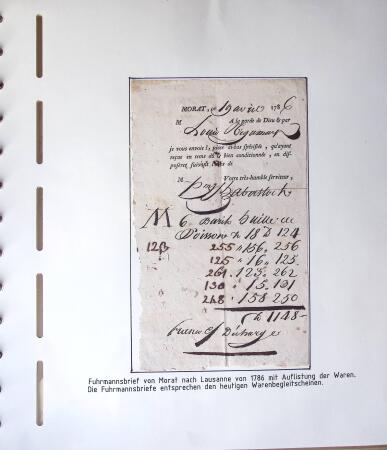 MORAT, le 19 avril 1786
M A la garde de Dieu & par
Louis
je vous envoie l, piece ci-bas spécifiée, qu'ayant
reçue en tems dû & bien conditionnée, en dis-
poserez suivant l'avis de
M Votre très-humble serviteur,
M 6 Barils huille de
Poisson 18 124
123 255 156 256
125 16 125
261 123 262
130 15 131
248 158 250
1148
Fuhrmannsbrief von Morat nach Lausanne von 1786 mit Auflistung der Waren.
Die Fuhrmannsbriefe entsprechen den heutigen Warenbegleitscheinen.